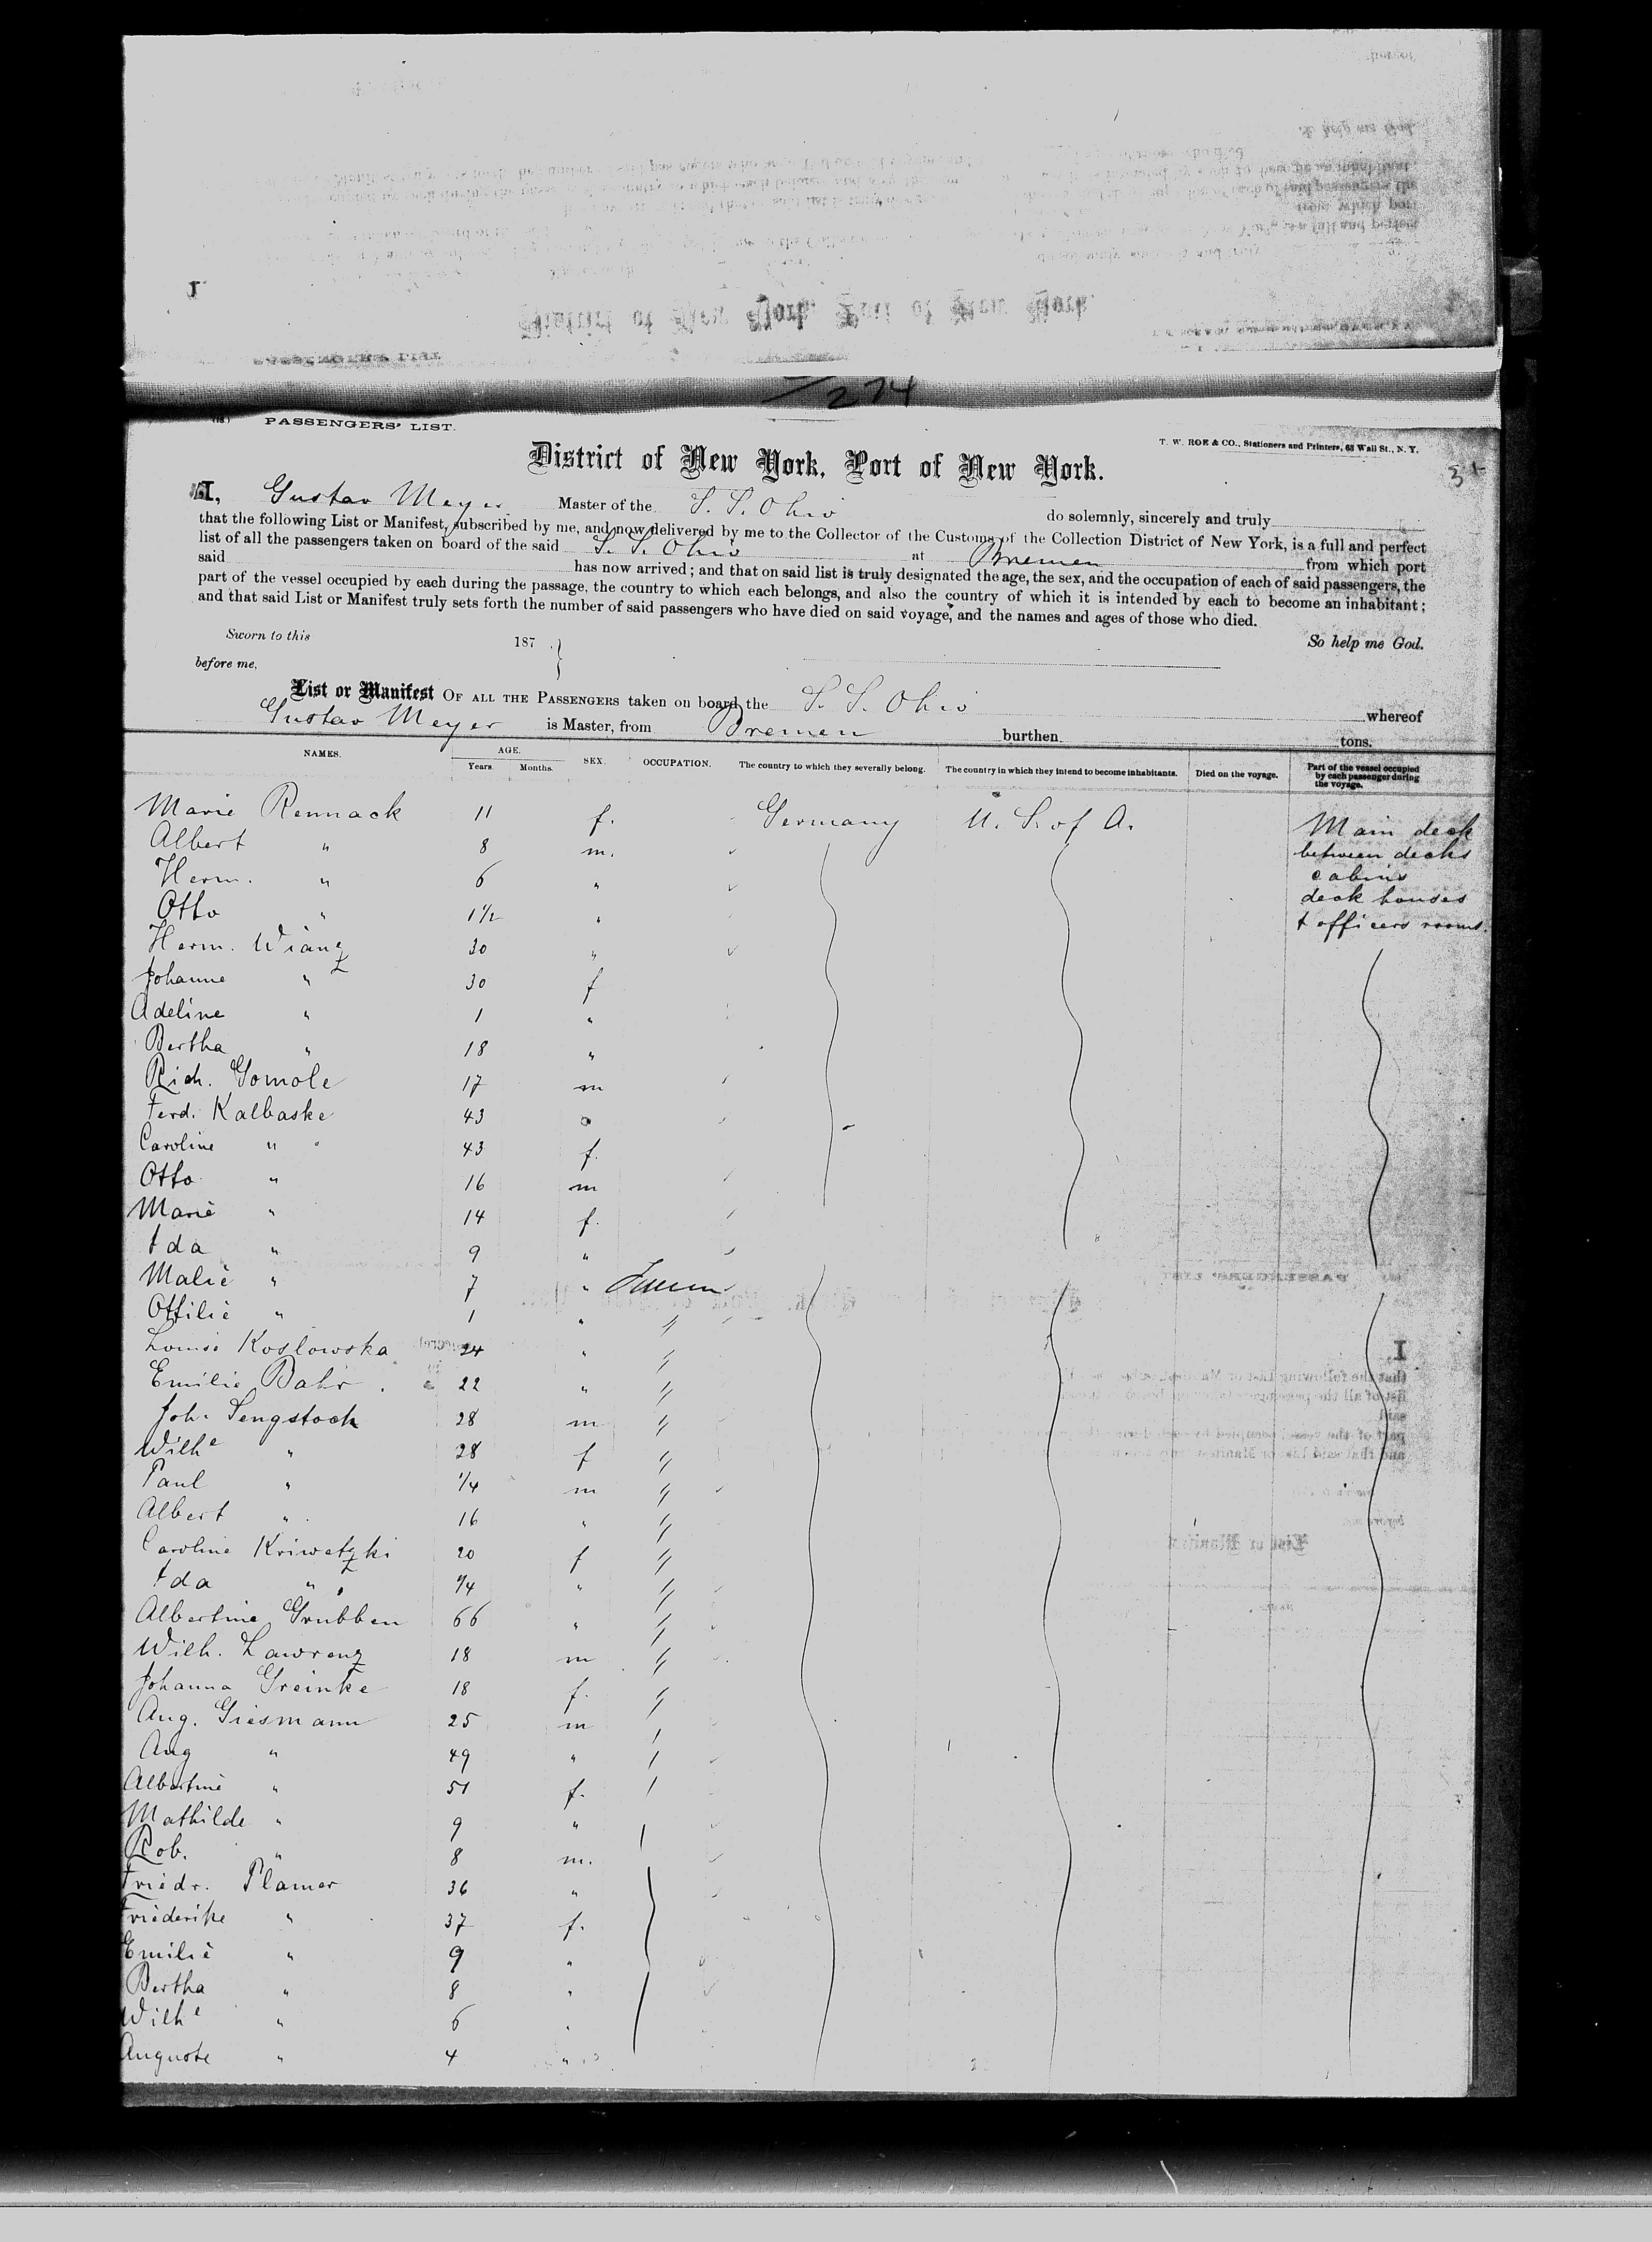 274
(18.) PASSENGERS' LIST.
T. W. ROE & CO., Stationers and Printers, 63 Wall St., N. Y.
District of New York, Port of New York.
I, Gustav Meyer Master of the S. S. Ohio do solemnly, sincerely and truly
that the following List or Manifest, subscribed by me, and now delivered by me to the Collector of the Customs of the Collection District of New York, is a full and perfect
list of all the passengers taken on board of the said S. S. Ohio at Bremen from which port
said has now arrived; and that on said list is truly designated the age, the sex, and the occupation of each of said passengers, the
part of the vessel occupied by each during the passage, the country to which each belongs, and also the country of which it is intended by each to become an inhabitant;
and that said List or Manifest truly sets forth the number of said passengers who have died on said voyage, and the names and ages of those who died.
Sworn to this 187 . } So help me God.
before me,
List or Manifest OF ALL THE PASSENGERS taken on board the S. S. Ohio whereof
Gustav Meyer is Master, from Bremen burthen tons.
NAMES. AGE. Years. Months. SEX. OCCUPATION. The country to which they severally belong. The country in which they intend to become inhabitants. Died on the voyage. Part of the vessel occupied by each passenger during the voyage.
Marie Rennack 11 f. Germany U. S. of A. Main deck
Albert " 8 m. between decks
Herm. " 6 " cabins
Otto " 1 1/2 " deck houses
& officers rooms.
Herm. Wianz 30 "
Johanne " 30 f
Adeline " 1 "
Bertha " 18 "
Rich. Gomole 17 m
Ferd. Kalbaske 43 "
Caroline " 43 f.
Otto " 16 m
Marie " 14 f.
Ida " 9 "
Malie " 7 "
Ottilie " 1 " "
Louise Koslowska 24 " "
Emilie Bahr 22 " "
Joh. Sengstock 28 m "
Wilhe " 28 f "
Paul " 1/4 m "
Albert " 16 " "
Caroline Kriwetzki 20 f "
Ida " 1/4 " "
Albertine Grubben 66 " "
Wilh. Lawrenz 18 m "
Johanna Greinke 18 f. "
Aug. Giesmann 25 m
Aug " 49 "
Albertine " 51 f.
Mathilde " 9 "
Rob. " 8 m.
Friedr. Plamer 36 "
Friederike " 37 f.
Emilie " 9 "
Bertha " 8 "
Wilhe " 6 "
Auguste " 4 "